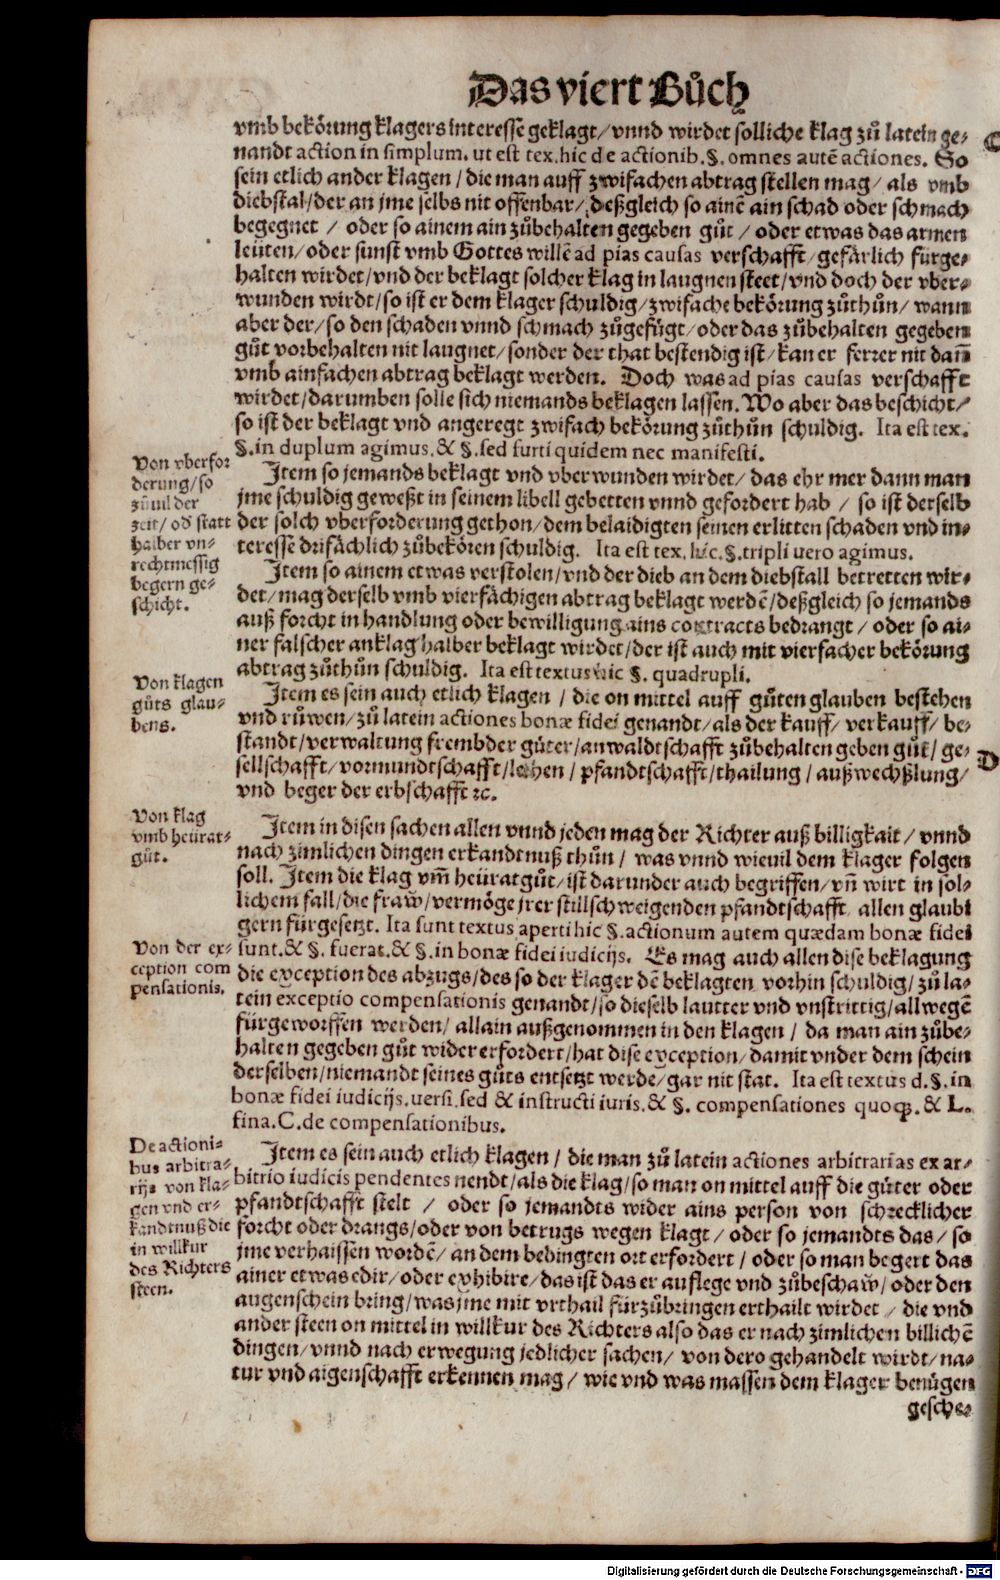 Das viert Bůch
vmb bekörung klagers interesse geklagt/ vnnd wirdet solliche klag zů latein ge⸗
nandt action in simplum. ut est tex. hic de actionib. §. omnes autē actiones. So
sein etlich ander klagen / die man auff zwifachen abtrag stellen mag/ als vmb
diebstal/ der an jme selbs nit offenbar/ deßgleich so ainē ain schad oder schmach
begegnet / oder so ainem ain zůbehalten gegeben gůt / oder etwas das armen
leüten/ oder sunst vmb Gottes willē ad pias causas verschafft/ gefärlich fürge⸗
halten wirdet/ vnd der beklagt solcher klag in laugnen steet/ vnd doch der vber⸗
wunden wirdt/ so ist er dem klager schuldig/ zwifache bekörung zůthůn/ wann
aber der/ so den schaden vnnd schmach zůgefügt/ oder das zůbehalten gegeben
gůt vorbehalten nit laugnet/ sonder der that bestendig ist/ kan er ferrer nit dañ
vmb ainfachen abtrag beklagt werden. Doch was ad pias causas verschafft
wirdet/ darumben solle sich niemands beklagen lassen. Wo aber das beschicht/
so ist der beklagt vnd angeregt zwifach bekörung zůthůn schuldig. Ita est tex.
§. in duplum agimus. & §. sed furti quidem nec manifesti.
Von vberfor
derung/ so
zůuil der
zeit/ od statt
halber vn⸗
rechtmessig
begern ge⸗
schicht.
Item so jemands beklagt vnd vberwunden wirdet/ das ehr mer dann man
jme schuldig geweßt in seinem libell gebetten vnnd gefordert hab / so ist derselb
der solch vberforderung gethon/ dem belaidigten seinen erlitten schaden vnd in⸗
teresse drifächlich zůbekören schuldig. Ita est tex. hic. §. tripli uero agimus.
Item so ainem etwas verstolen/ vnd der dieb an dem diebstall betretten wir⸗
det/ mag derselb vmb vierfächigen abtrag beklagt werdē/ deßgleich so jemands
auß forcht in handlung oder bewilligung ains contracts bedrangt / oder so ai⸗
ner falscher anklag halber beklagt wirdet/ der ist auch mit vierfacher bekörung
abtrag zůthůn schuldig. Ita est textus hic §. quadrupli.
Von klagen
gůts glau⸗
bens.
Item es sein auch etlich klagen / die on mittel auff gůten glauben bestehen
vnd růwen/ zů latein actiones bonæ fidei genandt/ als der kauff/ verkauff/ be⸗
standt/ verwaltung frembder güter/ anwaldtschafft zůbehalten geben gůt/ ge⸗
sellschafft/ vormundtschafft/ lehen / pfandtschafft/ thailung / außwechßlung/
vnd beger der erbschafft ꝛc.
Von klag
vmb heürat⸗
gůt.
Item in disen sachen allen vnnd jeden mag der Richter auß billigkait / vnnd
nach zimlichen dingen erkandtnuß thůn / was vnnd wieuil dem klager folgen
soll. Item die klag vm̄ heüratgůt/ ist darunder auch begriffen/ vñ wirt in sol⸗
lichem fall/ die fraw/ vermöge jrer stillschweigenden pfandtschafft allen glaubi
gern fürgesetzt. Ita sunt textus aperti hic §. actionum autem quædam bonæ fidei
sunt. & §. fuerat. & §. in bonæ fidei iudicijs. Es mag auch allen dise beklagung
Von der ex⸗
ception com
pensationis.
die exception des abzugs/ des so der klager dē beklagten vorhin schuldig/ zů la⸗
tein exceptio compensationis genandt/ so dieselb lautter vnd vnstrittig/ allwegē
fürgeworffen werden/ allain außgenommen in den klagen / da man ain zůbe⸗
halten gegeben gůt wider erfordert/ hat dise exception/ damit vnder dem schein
derselben/ niemandt seines gůts entsetzt werde/ gar nit stat. Ita est textus d. §. in
bonæ fidei iudicijs. uersi. sed & instructi iuris. & §. compensationes quoqꝫ. & L.
fina. C. de compensationibus.
De actioni⸗
bus arbitra⸗
rijs von kla⸗
gen vnd er⸗
kandtnuß die
in willkur
des Richters
steen.
Item es sein auch etlich klagen / die man zů latein actiones arbitrarias ex ar⸗
bitrio iudicis pendentes nendt/ als die klag/ so man on mittel auff die güter oder
pfandtschafft stelt / oder so jemandts wider ains person von schrecklicher
forcht oder drangs/ oder von betrugs wegen klagt / oder so jemandts das / so
jme verhaissen wordē/ an dem bedingten ort erfordert / oder so man begert das
ainer etwas edir/ oder exhibire/ das ist das er auflege vnd zůbeschaw/ oder den
augenschein bring/ was jme mit vrthail fürzůbringen erthailt wirdet / die vnd
ander steen on mittel in willkur des Richters also das er nach zimlichen billichē
dingen/ vnnd nach erwegung jedlicher sachen/ von dero gehandelt wirdt/ na⸗
tur vnd aigenschafft erkennen mag/ wie vnd was massen dem klager benügen
gesche⸗
C
D
Digitalisierung gefördert durch die Deutsche Forschungsgemeinschaft - DFG